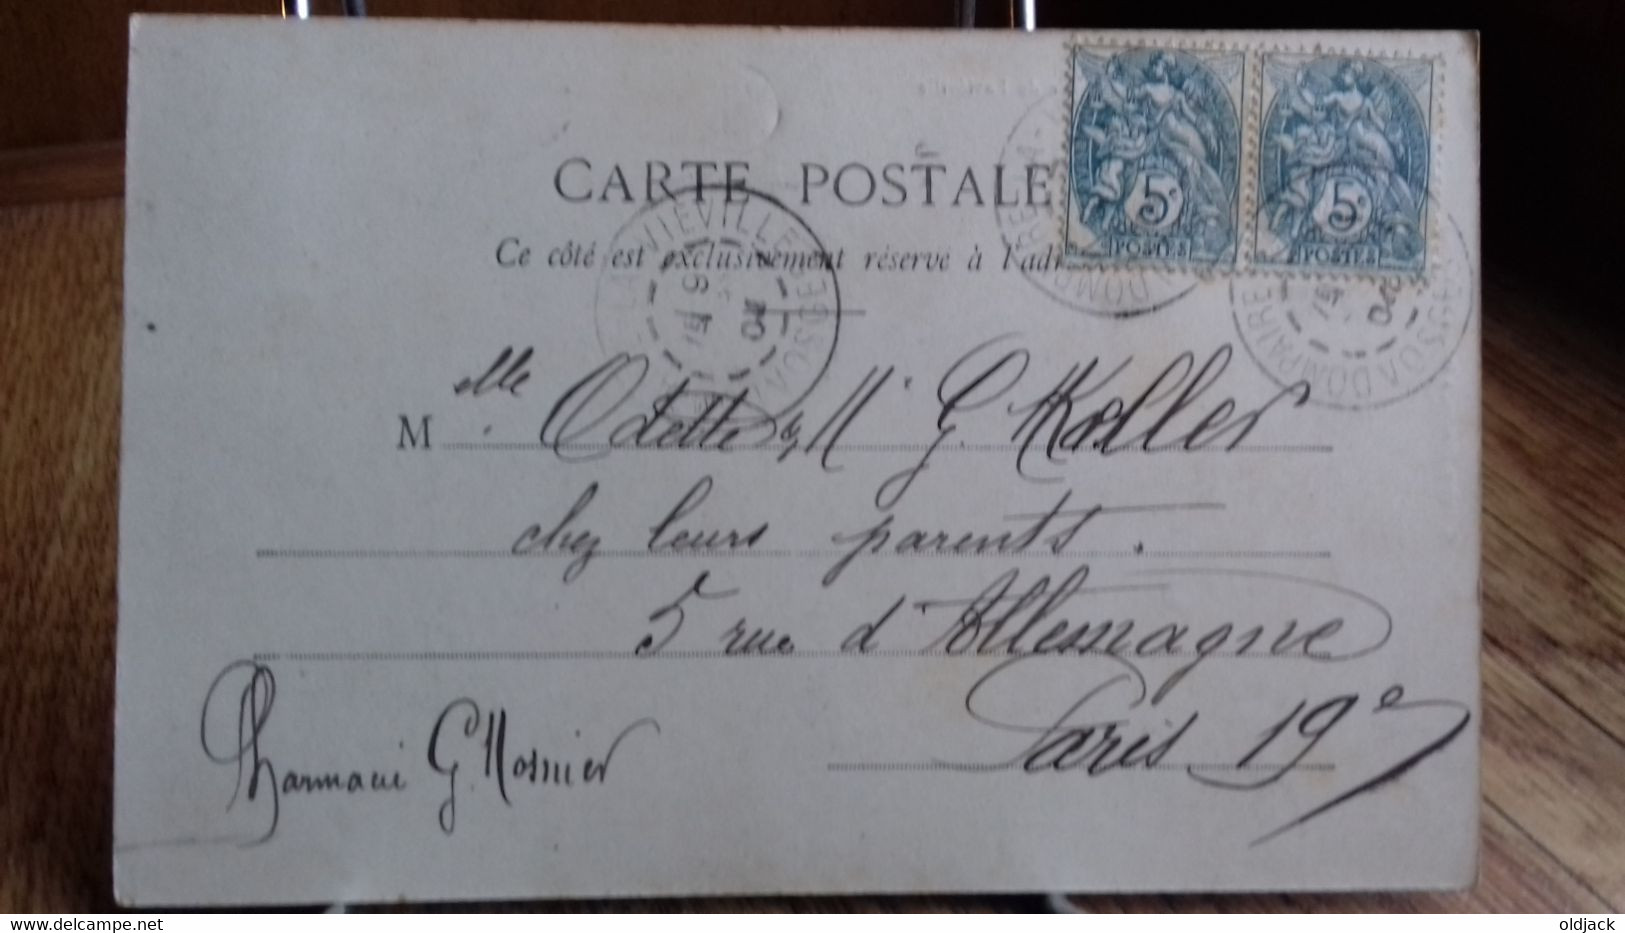 CARTE POSTALE
Ce côté est exclusivement réservé à l'adr
5c 5c
POSTES POSTES
LA VIEVILLE
9
04
DOMPAIRE
04
Mlle Odette & M. G. Koller
chez leurs parents.
5 rue d'Allemagne
Paris 19e
Pharmacie G. Mosnier
www.delcampe.net
oldjack